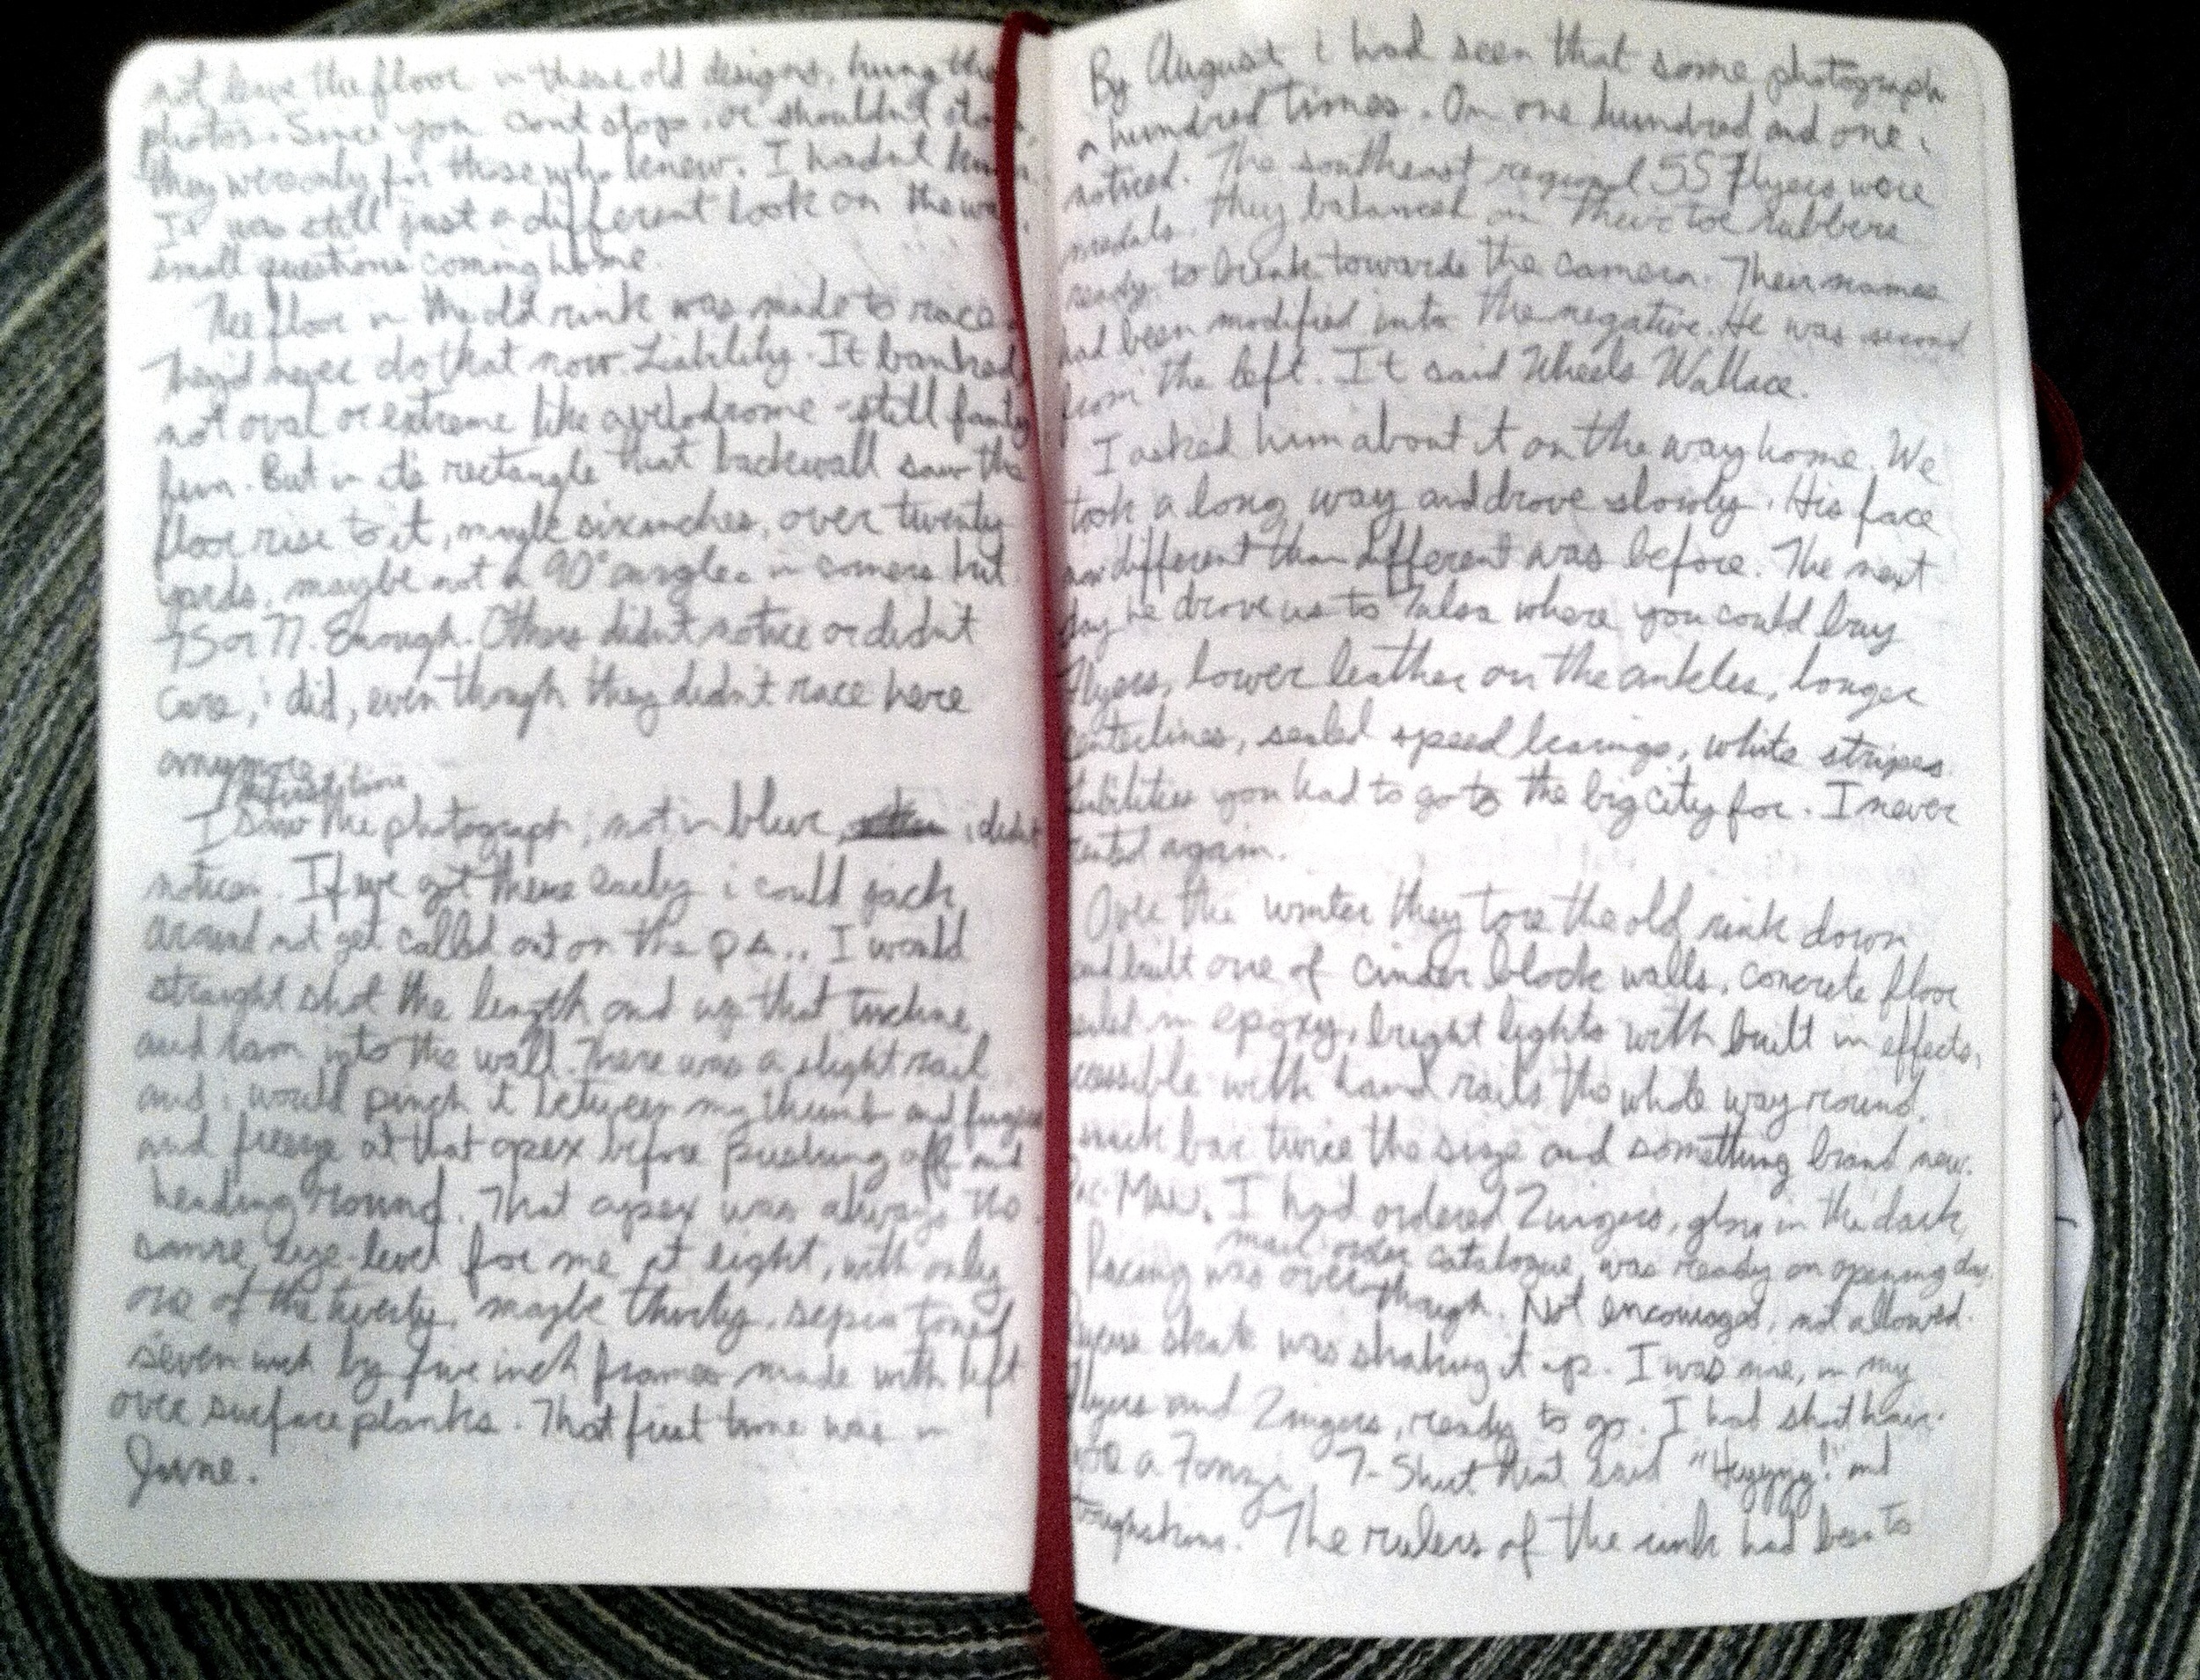 not leave the floor in these old designs, hung the
photos. Since you can't stop, or shouldn't stop,
they were only for those who knew. I hadn't known.
It was still just a different look on the wall,
small questions coming home.
The floor in the old rink was made to race.
They'd never do that now. Liability. It banked,
not oval or extreme like a velodrome - still fairly
fun. But in it's rectangle that backwall saw the
floor rise to it, maybe six inches, over twenty
yards, maybe not a 90° angle in corners but
75 or 77. Enough. Others didn't notice or didn't
care, i did, even though they didn't race here
anymore.
The first time
I saw the photograph, not in blur, i didn't
notice. If we got there early i could jack
around not get called out on the p.a.. I would
straight shot the length and up that incline
and lam into the wall. There was a slight rail
and i would pinch it between my thumb and fingers
and freeze at that apex before pushing off and
heading round. That apex was always the
same, eye-level for me at eight, with only
one of the twenty, maybe thirty, sepia toned
seven inch by five inch frames made with left
over surface planks. That first time was in
June.
By August i had seen that some photograph
a hundred times. On one hundred and one i
noticed. The southeast regional 55 Flyers wore
medals. They balanced on their toe rubbers
ready to break towards the camera. Their names
had been modified into the negative. He was second
from the left. It said Wheels Wallace.
I asked him about it on the way home. We
took a long way and drove slowly. His face
different than different was before. The next
day he drove us to Tulsa where you could buy
Flyers, lower leather on the ankles, longer
centerlines, sealed speed bearings, white stripes.
you had to go to the big city for. I never
rented again.
Over the winter they tore the old rink down
and built one of cinder block walls, concrete floor
in epoxy, bright lights with built in effects,
with hand rails the whole way round.
Snack bar twice the size and something brand new.
Pac-Man. I had ordered Zingers, glow in the dark,
mail order catalogue, was ready on opening day.
Racing was over though. Not encouraged, not allowed.
Figure skate was shaking it up. I was nine, in my
Flyers and Zingers, ready to go. I had short hair.
wore a Fonzi T-Shirt that said "Heyyyy!" and
toughskins. The rulers of the rink had been to